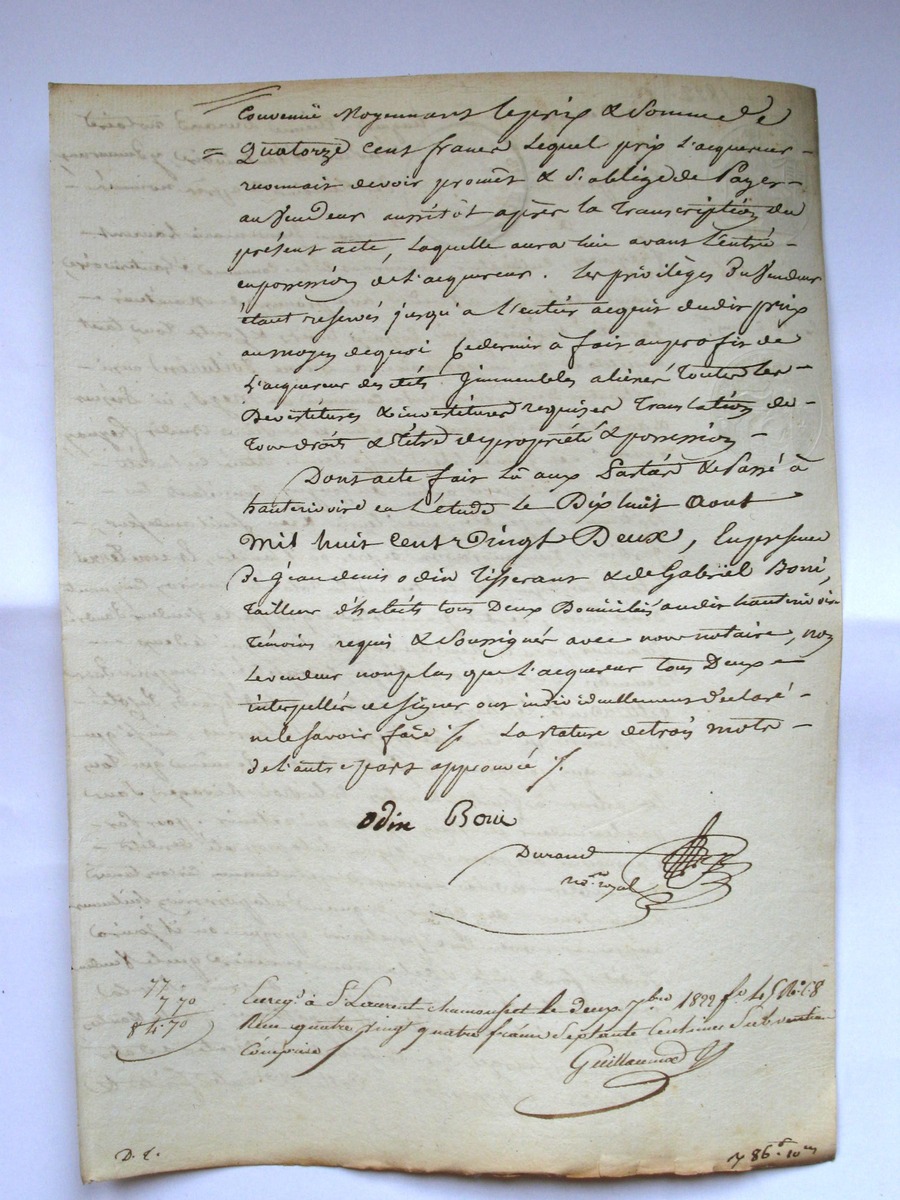 Convenüe Moyennant le prix & Somme de
Quatorze cent francs Lequel prix L'acquereur
reconnait devoir promet & S'oblige de Payer
au Vendeur aussitôt après la Transcription du
présent acte, Laquelle aura lieu avant L'entré
en possession de L'acquereur. Les privilèges du Vendeur
étant reservés jusqu'a L'entier acquit dudit prix
au moyen de quoi ce dernier à fait au profit de
L'acquereur des dits Immeubles aliénés Toutes les
Devestitures & investitures requises Translation de
Tous droits & titres de propriété & possession
Dont acte fait Lû aux parties & Passé à
hauterivoire en L'étude Le Dix huit Aout
Mil huit cent Vingt Deux, En présence
De Jean denis odin Tisserant & de Gabriël Boni,
Tailleur d'habits tous Deux Domiciliés audit hauterivoire
Témoins requis & Soussignés avec nous notaire, non
Le vendeur non plus que L'acquereur tous Deux
interpellés de signer ont individuellement déclaré
ne le savoir faire /. La rature de trois mots
de L'autre part approuvé /.
odin Boni
Durand
not.re royal
77
7 70
84.70
Enreg.é à S.t Laurent chamousset le deux 7bre 1822 f.o 45 R.o C.8
Reçu quatre vingt quatre francs Septante Centimes Subvention
Comprise
Guillaumod
D. L.
786. 10